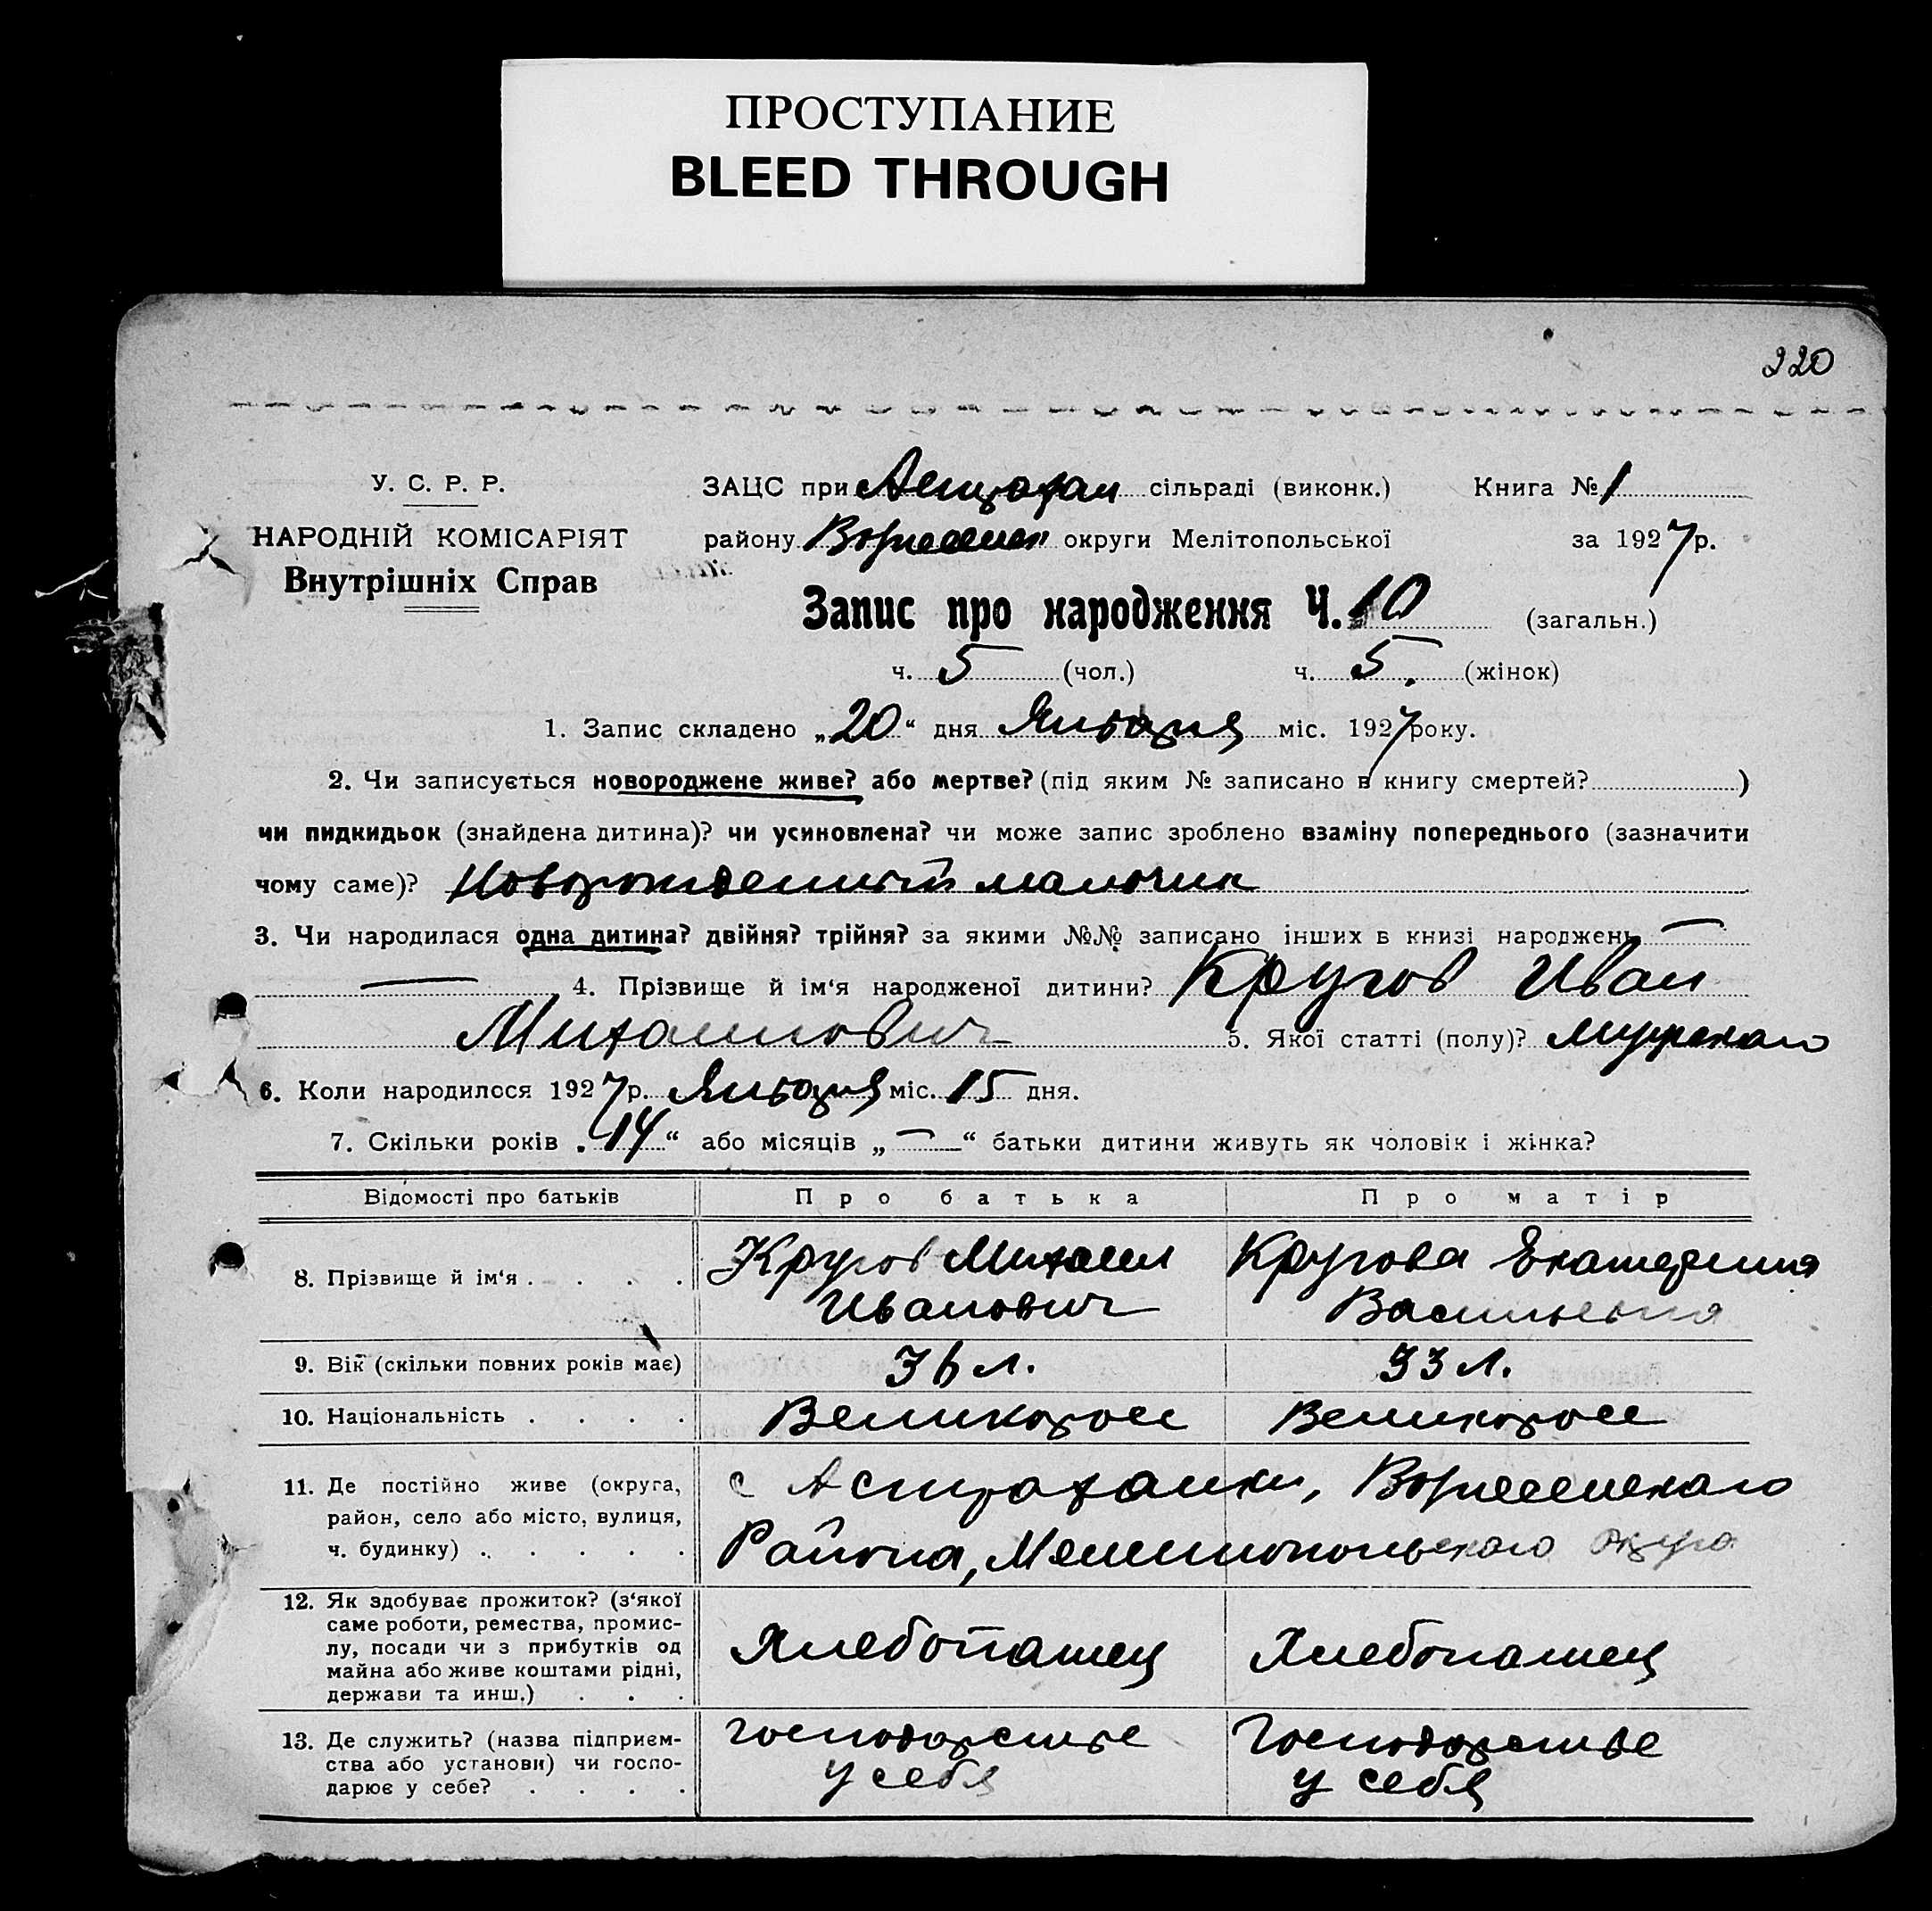 ПРОСТУПАНИЕ
BLEED THROUGH
220
У. С. Р. Р.
НАРОДНІЙ КОМІСАРІЯТ
Внутрішніх Справ
ЗАЦС при Астрахан сільраді (виконк.) Книга № 1
району Вознесенск округи Мелітопольської за 1927 р.
Запис про народження Ч. 10 (загальн.)
ч. 5 (чол.) ч. 5. (жінок)
1. Запис складено „20“ дня Января міс. 1927 року.
2. Чи записується новороджене живе? або мертве? (під яким № записано в книгу смертей? )
чи пидкидьок (знайдена дитина)? чи усиновлена? чи може запис зроблено взаміну попереднього (зазначити
чому саме)? Новорожденный мальчик
3. Чи народилася одна дитина? двійня? трійня? за якими №№ записано інших в книзі народжень —
— 4. Прізвище й ім‘я народженої дитини? Кругов Иван
Михайлович 5. Якої статті (полу)? мужскаго
6. Коли народилося 1927 р. Января міс. 15 дня.
7. Скільки років „14“ або місяців „—“ батьки дитини живуть як чоловік і жінка?
Відомості про батьків Про батька Про матір
8. Прізвище й ім‘я . . . . Кругов Михаил Кругова Екатерина
Иванович Васильевна
9. Вік (скільки повних років має) 36 л. 33 л.
10. Національність . . . . Великоросс Великоросс
11. Де постійно живе (округа, район, село або місто, вулиця, ч. будинку) . . . . . с Астраханки, Вознесенскаго
Района, Мелитопольскаго Округа
12. Як здобуває прожиток? (з‘якої
саме роботи, ремества, промис-
лу, посади чи з прибутків од
майна або живе коштами рідні,
держави та инш.) . . . Хлебопашец Хлебопашец
13. Де служить? (назва підприєм-
ства або установи) чи госпо-
дарює у себе? . . . . Господарстве Господарстве
у себя у себя